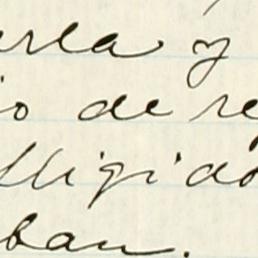 urla y
io de re
lligido
ban.